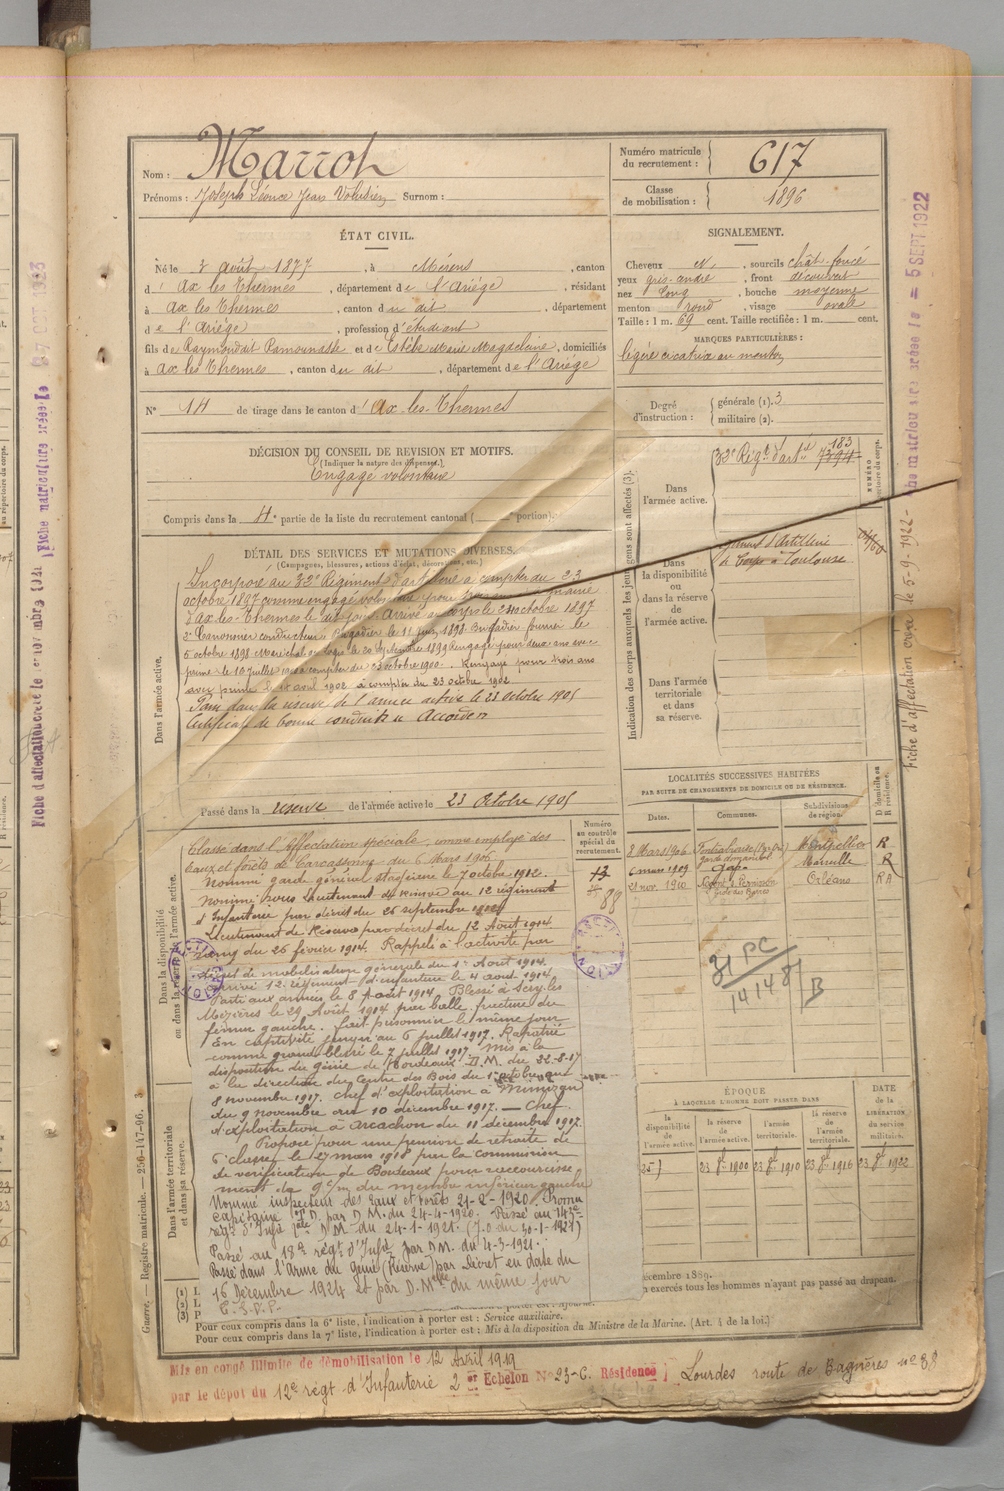 Nom : Marrot
Prénoms : Joseph Léonce Jean Volusien Surnom :
Numéro matricule du recrutement : 617
Classe de mobilisation : 1896
ÉTAT CIVIL.
Né le 3 août 1877, à Mérens, canton
d' Ax les Thermes, département de l'Ariége, résidant
à Ax les Thermes, canton du dit, département
de l'Ariége, profession d'étudiant
fils de Raymond dit Ramounasse et de Estèbe Marie Magdeleine, domiciliés
à Ax les Thermes, canton du dit, département de l'Ariége
N° 14 de tirage dans le canton d' Ax-les-Thermes
SIGNALEMENT.
Cheveux , sourcils chât. foncé
yeux gris-andré, front découvert
nez long, bouche moyenne
menton rond, visage ovale
Taille : 1 m. 69 cent. Taille rectifiée : 1 m. cent.
MARQUES PARTICULIÈRES :
légère cicatrice au menton
Degré d'instruction : générale (1). 3
militaire (2).
DÉCISION DU CONSEIL DE REVISION ET MOTIFS.
(Indiquer la nature des dispenses.)
Engagé volontaire
Compris dans la 4e partie de la liste du recrutement cantonal ( e portion).
DÉTAIL DES SERVICES ET MUTATIONS DIVERSES.
(Campagnes, blessures, actions d'éclat, décorations, etc.)
Dans l'armée active.
Incorporé au 32e Régiment d'artillerie à compter du 23
octobre 1897 comme engagé volontaire pour mairie
d'Ax-les-Thermes le dit jour. Arrivé au corps le 24 octobre 1897
2e Canonnier conducteur. Brigadier le 11 1898. Brigadier fourrier le
5 octobre 1898 Maréchal des logis le 20 septembre 1899 Rengagé pour deux ans avec
prime le 10 juillet 1900 à compter du 23 octobre 1900. Rengagé pour trois ans
avec prime le 18 août 1902 à compter du 23 octobre 1902
Passé dans la réserve de l'armée active le 23 octobre 1905
Certificat de bonne conduite Accordé
Passé dans la réserve de l'armée active le 23 Octobre 1905
Indication des corps auxquels les jeunes gens sont affectés (3).
NUMÉRO
Dans l'armée active.
32e Régt d'artie 183
Dans la disponibilité ou dans la réserve de l'armée active.
d'Artillerie
à Toulouse
Dans l'armée territoriale et dans sa réserve.
LOCALITÉS SUCCESSIVES HABITÉES
PAR SUITE DE CHANGEMENTS DE DOMICILE OU DE RÉSIDENCE.
Dates. Communes. Subdivisions de région. D domicile ou R résidence.
8 Mars 1906 Montpellier R
garde domanial
6 mars 1909 Gap Marseille R
21 nov. 1910 Orléans R A
garde des Barres
Numéro au contrôle spécial du recrutement.
88
Dans la disponibilité ou dans la réserve de l'armée active.
Classé dans l'Affectation spéciale, comme employé des
Eaux et forêts de Carcassonne du 6 Mars 1906.
Nommé garde général stagiaire le 7 octobre 1912.
Nommé sous Lieutenant de réserve au 12 régiment
d'Infanterie par décret du 26 septembre
Lieutenant de Réserve par décret du 12 Août 1914
rang du 26 février 1914. Rappelé à l'activité par
décret de mobilisation générale du 1er Août 1914.
arrivé 12e régiment d'infanterie le 4 août 1914.
Parti aux armées le 8 Août 1914. Blessé à Séry-les
Mezières le 29 Août 1914 par balle, fracture du
fémur gauche. Fait prisonnier le même jour
En captivité jusqu'au 6 juillet 1917. Rapatrié
comme grand blessé le 7 juillet 1917. Mis à la
disposition du génie de Bordeaux D.M. du 22-8-17
à la direction du Centre des Bois du 1er octobre au
8 novembre 1917. Chef d'exploitation à Mimizan
du 9 novembre au 10 décembre 1917. — Chef
d'exploitation à Arcachon du 11 décembre 1917.
Proposé pour une pension de retraite de
6e classe le 27 mars 1918 par la commission
de vérification de Bordeaux pour raccourcisse
ment de 9 c/m du membre inférieur gauche
Nommé inspecteur des Eaux et forêts 21-2-1920. Promu
capitaine à T.D. par D.M. du 24-4-1920. Passé au 14e
régt d'Infie D.M. du 24-1-1921. (J.O. du 30-1-1921)
Passé au 18e régt d'Infie par D.M. du 4-3-1921.
Passé dans l'Arme du Génie (Réserve) par Décret en date du
16 Décembre 1924 et par D. Melle du même jour
Dans l'armée territoriale et dans sa réserve.
31 PC
14148
B
ÉPOQUE
À LAQUELLE L'HOMME DOIT PASSER DANS
la disponibilité de l'armée active.
la réserve de l'armée active.
l'armée territoriale.
la réserve de l'armée territoriale.
DATE de la LIBÉRATION du service militaire.
23 8bre 1900 23 8bre 1910 23 8bre 1916 23 8bre 1922
décembre 1889.
exercés tous les hommes n'ayant pas passé au drapeau.
Pour ceux compris dans la 6e liste, l'indication à porter est : Service auxiliaire.
Pour ceux compris dans la 7e liste, l'indication à porter est : Mis à la disposition du Ministre de la Marine. (Art. 4 de la loi.)
Mis en congé illimité de démobilisation le 12 Avril 1919
par le dépôt du 12e régt d'Infanterie 2er Echelon N° 23-C. Résidence Lourdes route de Bagnères n° 88
Guerre. — Registre matricule. — 250-147-96.
Fiche d'affectation créée le 5-9-1922
5 SEPT 1922